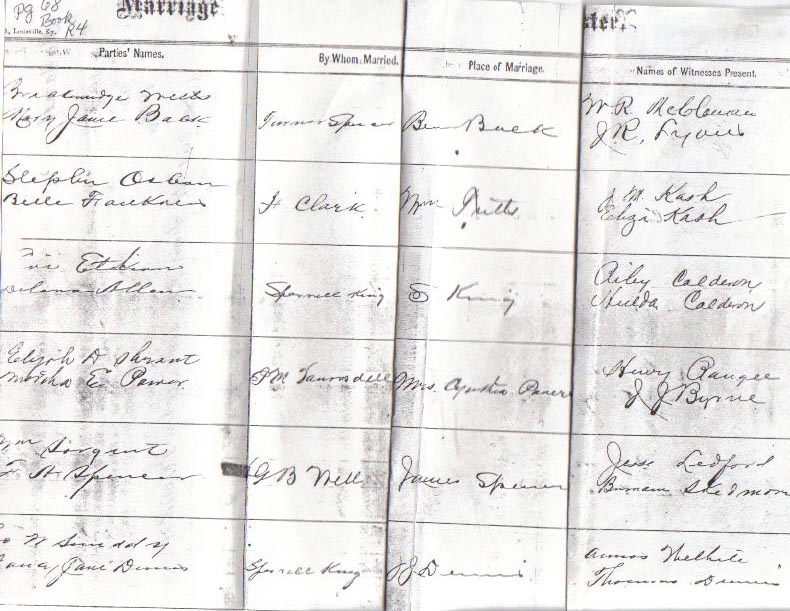 Pg 68
Book
R4
Marriage
ster.
Louisville, Ky.
Parties' Names.
By Whom Married.
Place of Marriage.
Names of Witnesses Present.
Breakinridge Wells
Mary Jane Back
Turner Spencer
Ben Back
W. R. McClanan
J. R. Lyons
Stephen Osban
Belle Faulkner
H Clark
Wm Pitts
J. M. Kash
Eliza Kash
Allen
Sperrell King
S King
Riley Calderon
Hulda Calderon
Elijah D
Martha E. Power
J M Vanarsdell
Mrs. Cynthia Power
Henry Rangee
J J Byrne
Wm Sorgent
Spencer
G B Well
James Spencer
Jesse Ledford
Burnam Skidmore
W
Jane Dennis
Sperrell King
Dennis
Aamos Welhite
Thoomas Dennis